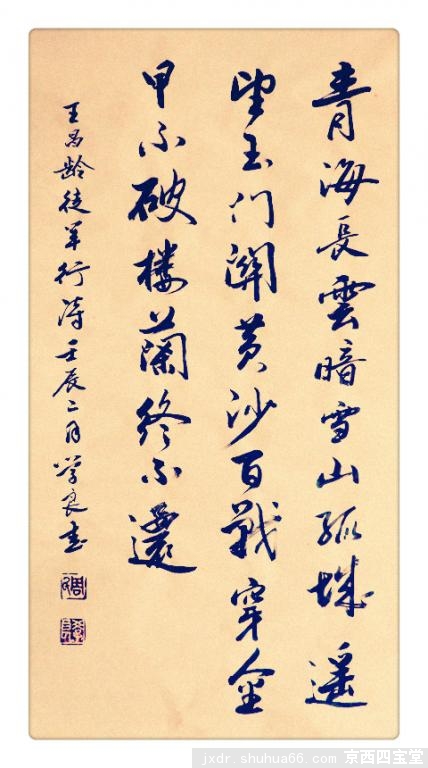 青海長雲暗雪山孤城遥
望玉门關黄沙百戰穿金
甲不破樓蘭終不還
王昌齡從军行诗壬辰二月学良书
jxdr.shuhua66.com 京西四宝堂